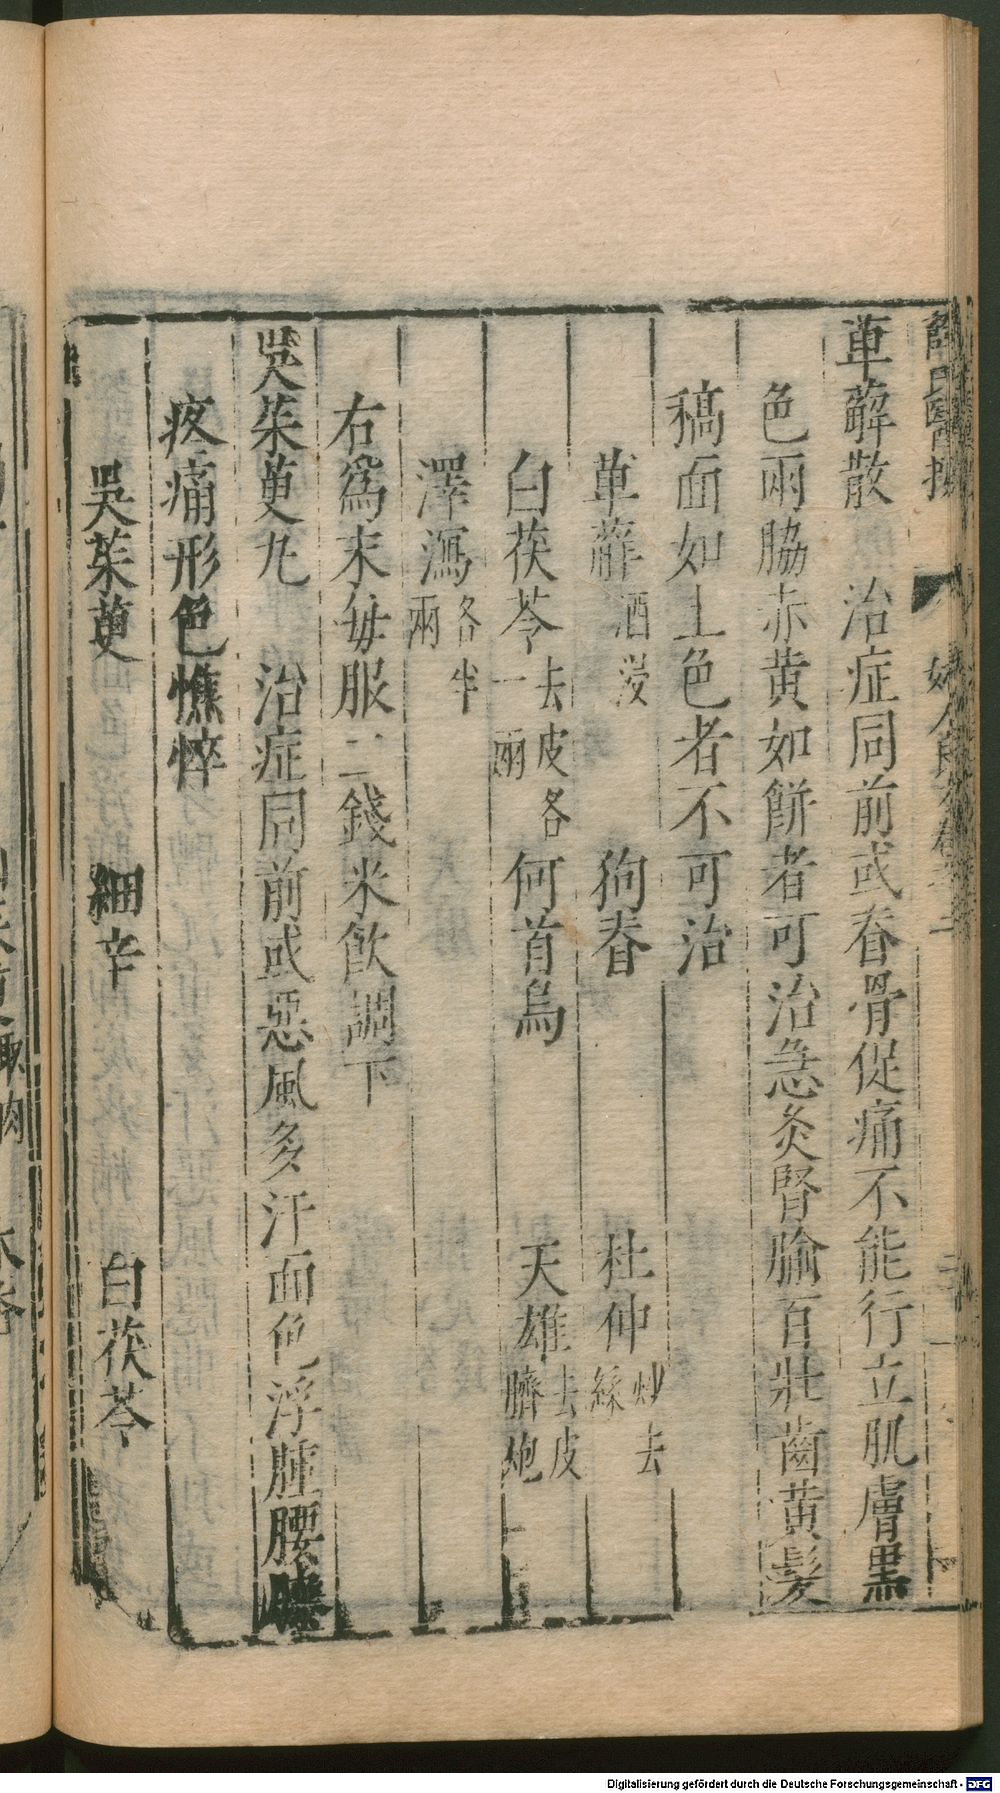 萆薢散　治症同前或脊骨促痛不能行立肌膚黑
色兩脇赤黄如餅者可治急灸腎腧百壯齒黄髮
稿面如土色者不可治
萆薢酒浸　狗脊　杜仲炒去絲
白茯苓去皮各一兩　何首烏　天雄去皮臍炮
澤瀉各半兩
右爲末每服二錢米飲調下
吳茱萸丸　治症同前或惡風多汗面色浮腫腰
疼痛形色憔悴
吳茱萸　細辛　白茯苓
Digitalisierung gefördert durch die Deutsche Forschungsgemeinschaft - DFG